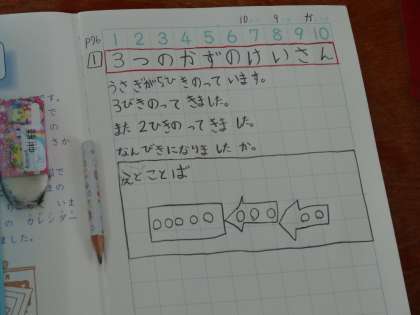 10 9 か
P76 1 2 3 4 5 6 7 8 9 10
1 3つのかずのけいさん
うさぎが5ひきのっています。
3びきのってきました。
また2ひきのってきました。
なんびきになりましたか。
えとことば
です。
で
の
さか
で
きの
いま
の カレンダー
ました。